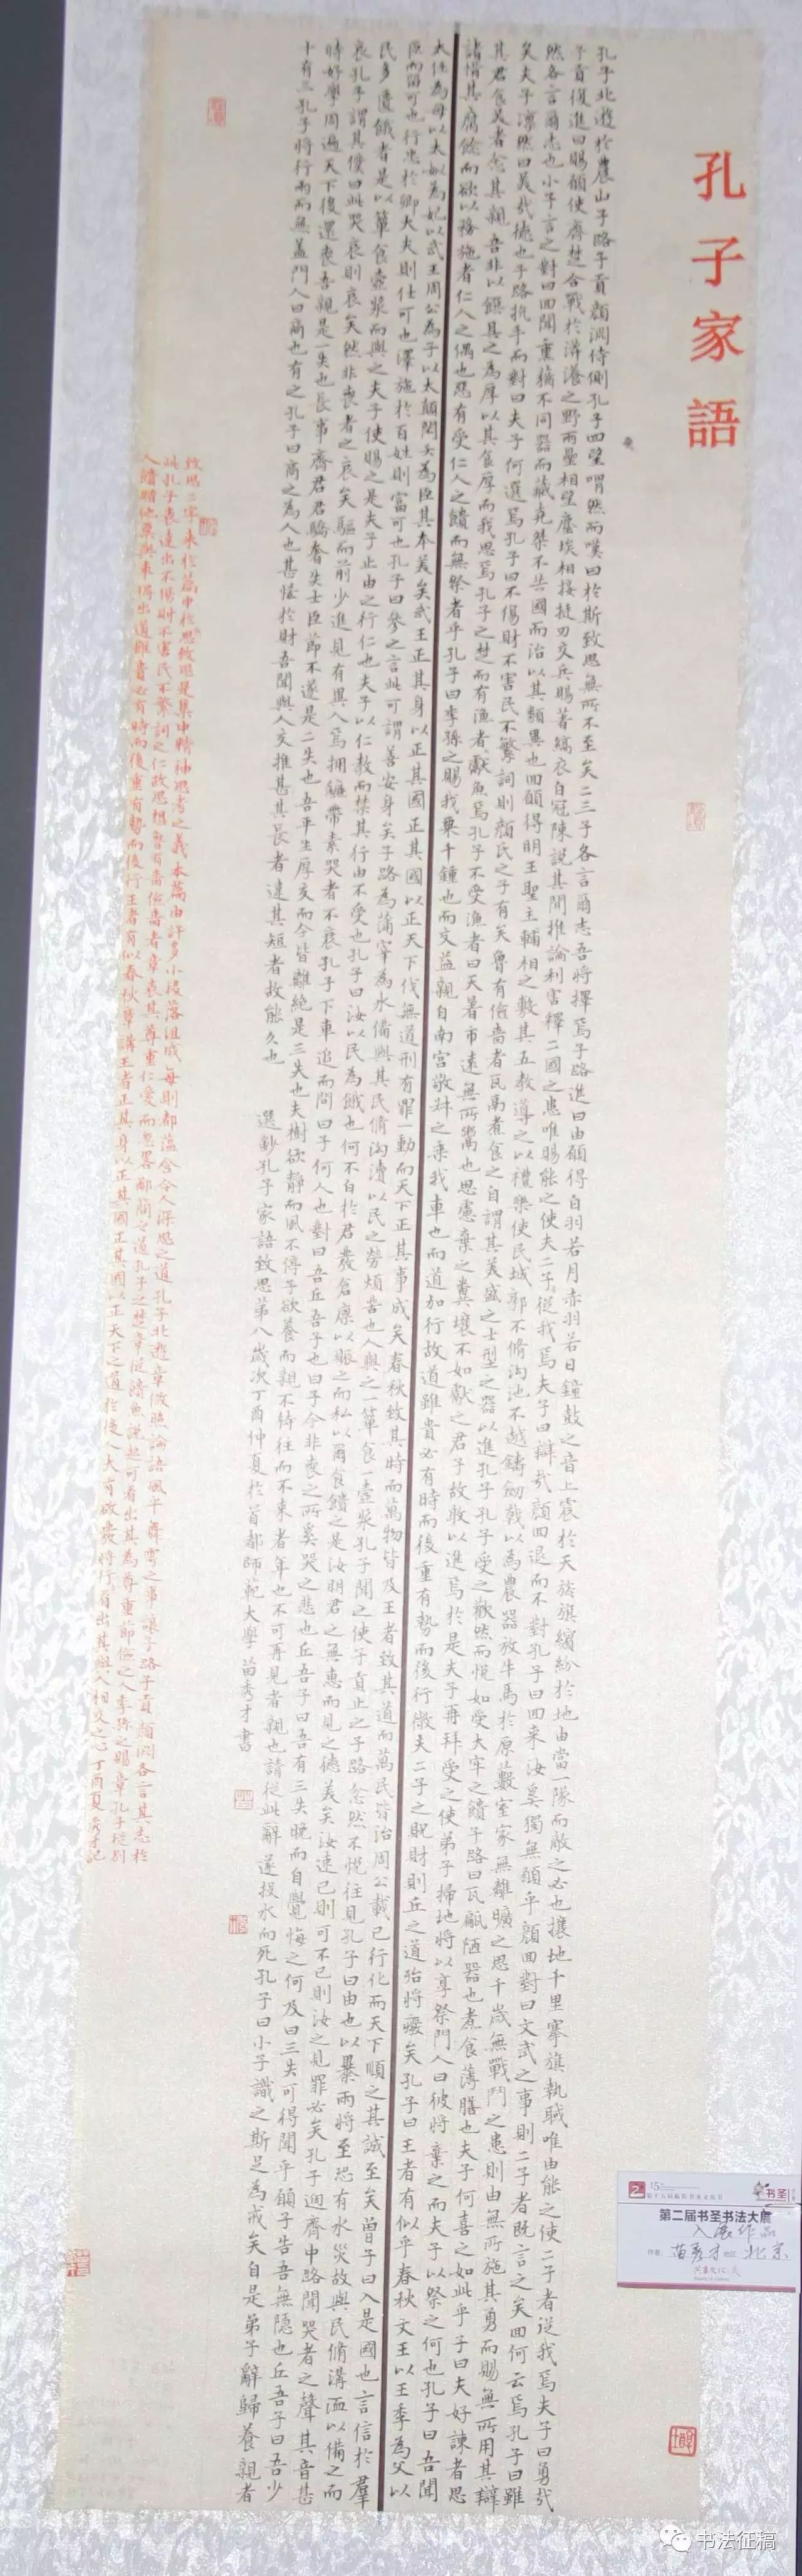 孔子家語
孔子北遊於農山子路子貢顏淵侍側孔子四望喟然而嘆曰於斯致思無所不至矣二三子各言爾志吾將擇焉子路進曰由願得白羽若月赤羽若日鐘鼓之音上震於天旍旗繽紛於地由當一隊而敵之必也攘地千里搴旗執馘唯由能之使二子者從我焉夫子曰勇哉
子貢復進曰賜願使齊楚合戰於漭瀁之野兩壘相望塵埃相接挺刃交兵賜著縞衣白冠陳說其間推論利害釋二國之患唯賜能之使夫二子從我焉夫子曰辯哉顏回退而不對孔子曰回來汝奚獨無願乎顏回對曰文武之事則二子者既言之矣回何云焉孔子曰雖
然各言爾志也小子言之對曰回聞薰蕕不同器而藏堯桀不共國而治以其類異也回願得明王聖主輔相之敷其五教導之以禮樂使民城郭不脩溝池不越鑄劍戟以為農器放牛馬於原藪室家無離曠之思千歲無戰鬥之患則由無所施其勇而賜無所用其辯
矣夫子凛然曰美哉德也子路抗手而對曰夫子何選焉孔子曰不傷財不害民不繁詞則顏氏之子有矣魯有儉嗇者瓦鬲煮食之自謂其美盛之土型之器以進孔子孔子受之歡然而悅如受大牢之饋子路曰瓦甂陋器也煮食薄膳也夫子何喜之如此乎子曰夫好諫者思
其君食美者念其親吾非以饌具之為厚以其食厚而我思焉孔子之楚而有漁者獻魚焉孔子不受漁者曰天暑市遠無所鬻也思慮棄之糞壤不如獻之君子故敢以進焉於是夫子再拜受之使弟子掃地將以享祭門人曰彼將棄之而夫子以祭之何也孔子曰吾聞
諸惜其腐餘而欲以務施者仁人之偶也惡有受仁人之饋而無祭者乎孔子曰季孫之賜我粟千鍾也而交益親自南宮敬叔之乘我車也而道加行故道雖貴必有時而後重有勢而後行微夫二子之貺財則丘之道殆將廢矣孔子曰王者有似乎春秋文王以王季為父以
太任為母以太姒為妃以武王周公為子以太顛閎夭為臣其本美矣武王正其身以正其國正其國以正天下伐無道刑有罪一動而天下正其事成矣春秋致其時而萬物皆及王者致其道而萬民皆治周公載己行化而天下順之其誠至矣曾子曰入是國也言信於羣
臣而留可也行忠於卿大夫則仕可也澤施於百姓則富可也孔子曰參之言此可謂善安身矣子路為蒲宰為水備與其民脩溝瀆以民之勞煩苦也人與之一簞食一壺漿孔子聞之使子貢止之子路忿然不悅往見孔子曰由也以暴雨將至恐有水災故與民脩溝洫以備之而
民多匱餓者是以簞食壺漿而與之夫子使賜止之是夫子止由之行仁也夫子以仁教而禁其行由不受也孔子曰汝以民為餓也何不白於君發倉廩以賑之而私以爾食饋之是汝明君之無惠而見之德美矣汝速已則可不已則汝之見罪必矣孔子適齊中路聞哭者之聲其音甚
哀孔子謂其僕曰此哭哀則哀矣然非喪者之哀矣驅而前少進見有異人焉擁鐮帶素哭者不哀孔子下車追而問曰子何人也對曰吾丘吾子也曰子今非喪之所奚哭之悲也丘吾子曰吾有三失晚而自覺悔之何及曰三失可得聞乎願子告吾無隱也丘吾子曰吾少
時好學周遍天下後還喪吾親是一失也長事齊君君驕奢失士臣節不遂是二失也吾平生厚交而今皆離絕是三失也夫樹欲靜而風不停子欲養而親不待往而不來者年也不可再見者親也請從此辭遂投水而死孔子曰小子識之斯足為戒矣自是弟子辭歸養親者
十有三孔子將行雨而無蓋門人曰商也有之孔子曰商之為人也甚恡於財吾聞與人交推其長者違其短者故能久也 選鈔孔子家語致思第八歲次丁酉仲夏於首都師範大學苗秀才書
致思二字來於篇中於思致思是集中精神思考之義本篇由許多小段落組成每則都蘊含令人深思之道孔子北遊章倣照論語風乎舞雩之事讓子路子貢顏淵各言其志於
此孔子表達出不傷財不害民不繁詞之仁政思想魯有儉嗇者章表其尊重仁愛而忽畧鄙簡之道孔子之楚章從饋魚說起可看出其為尊重節儉之人季孫之賜章孔子從別
人饋贈他粟與車得出道雖貴必有時而後重有勢而後行王者有似春秋章講王者正其身以正其國正其國以正天下之道於後人大有啟發將行看出其與人相交之心丁酉夏秀才記
第二届书圣书法大展
入展作品
作者：苗秀才 地区：北京
书圣
书法征稿